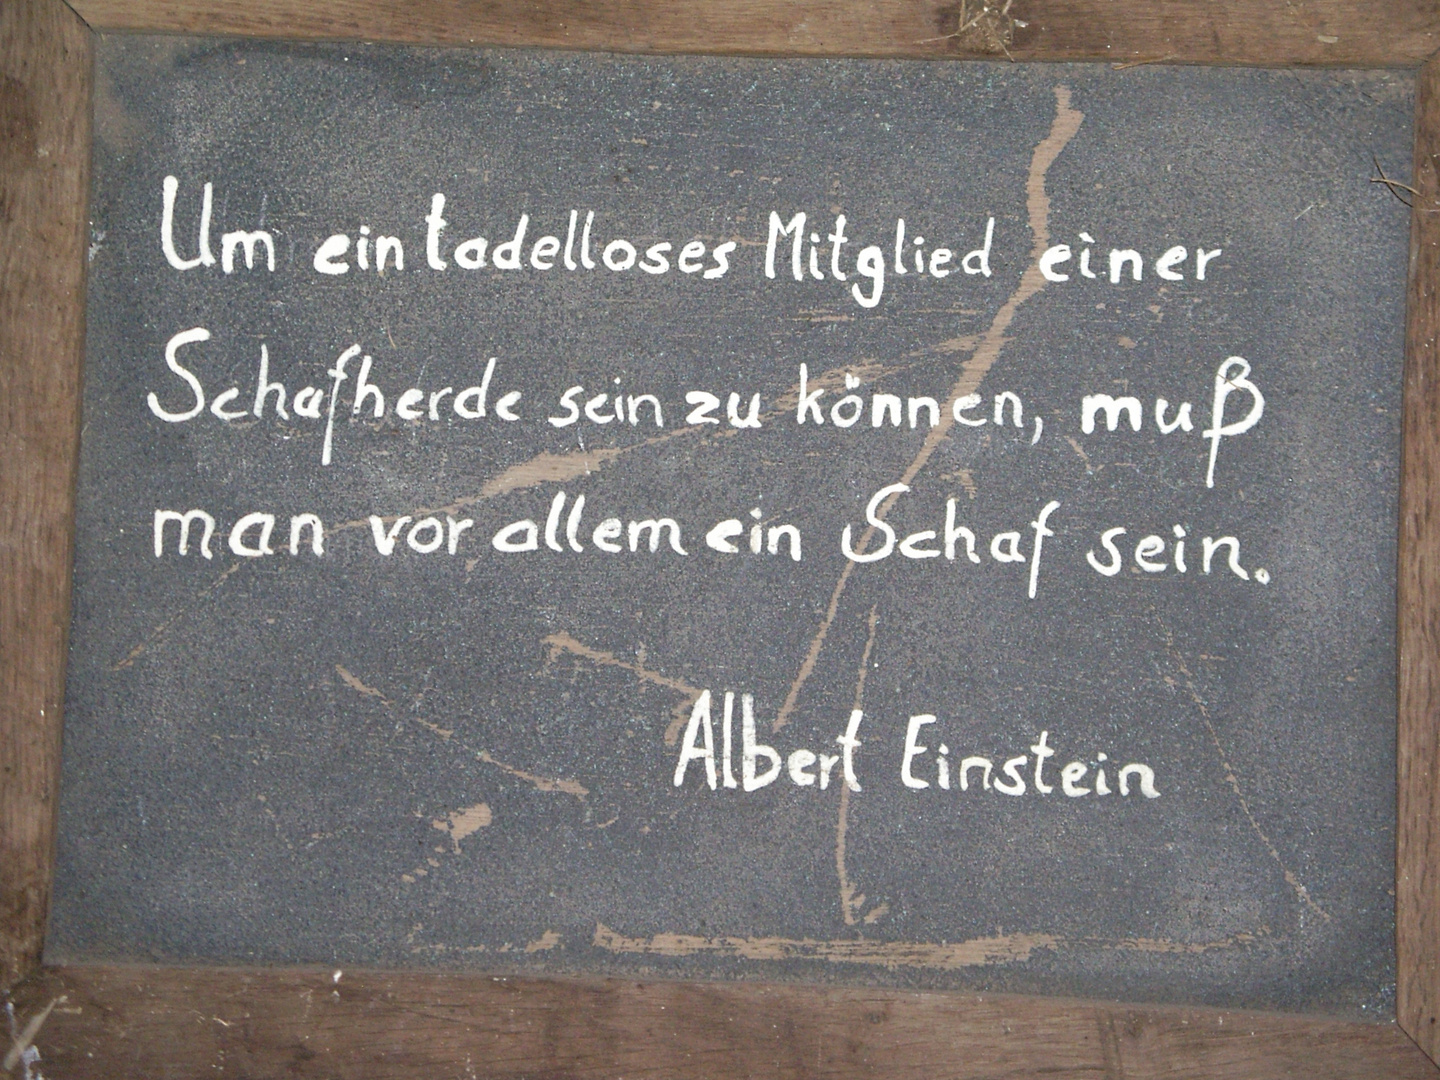 Um ein tadelloses Mitglied einer
Schafherde sein zu können, muß
man vor allem ein Schaf sein.
Albert Einstein